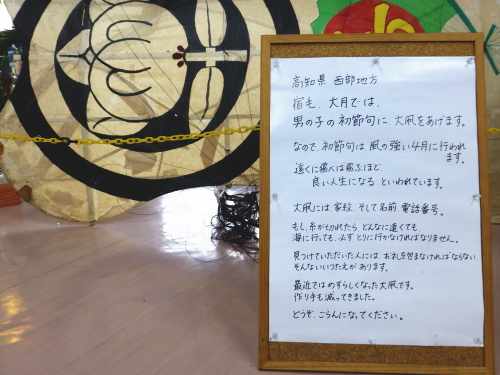 高知県 西部地方
宿毛、大月では、
男の子の初節句に 大凧をあげます。
なので、初節句は 風の強い4月に行われ
ます。
遠くに飛べば飛ぶほど、
良い人生になる といわれています。
大凧には 家紋 そして 名前 電話番号。
もし、糸が切れたら どんなに遠くても
海に行っても、必ず とりに行かなければなりません。
見つけていただいた人には、お礼を包まなければならない
そんないいつたえが あります。
最近では めずらしくなった大凧です。
作り手も減ってきました。
どうぞ、ごらんになってください。